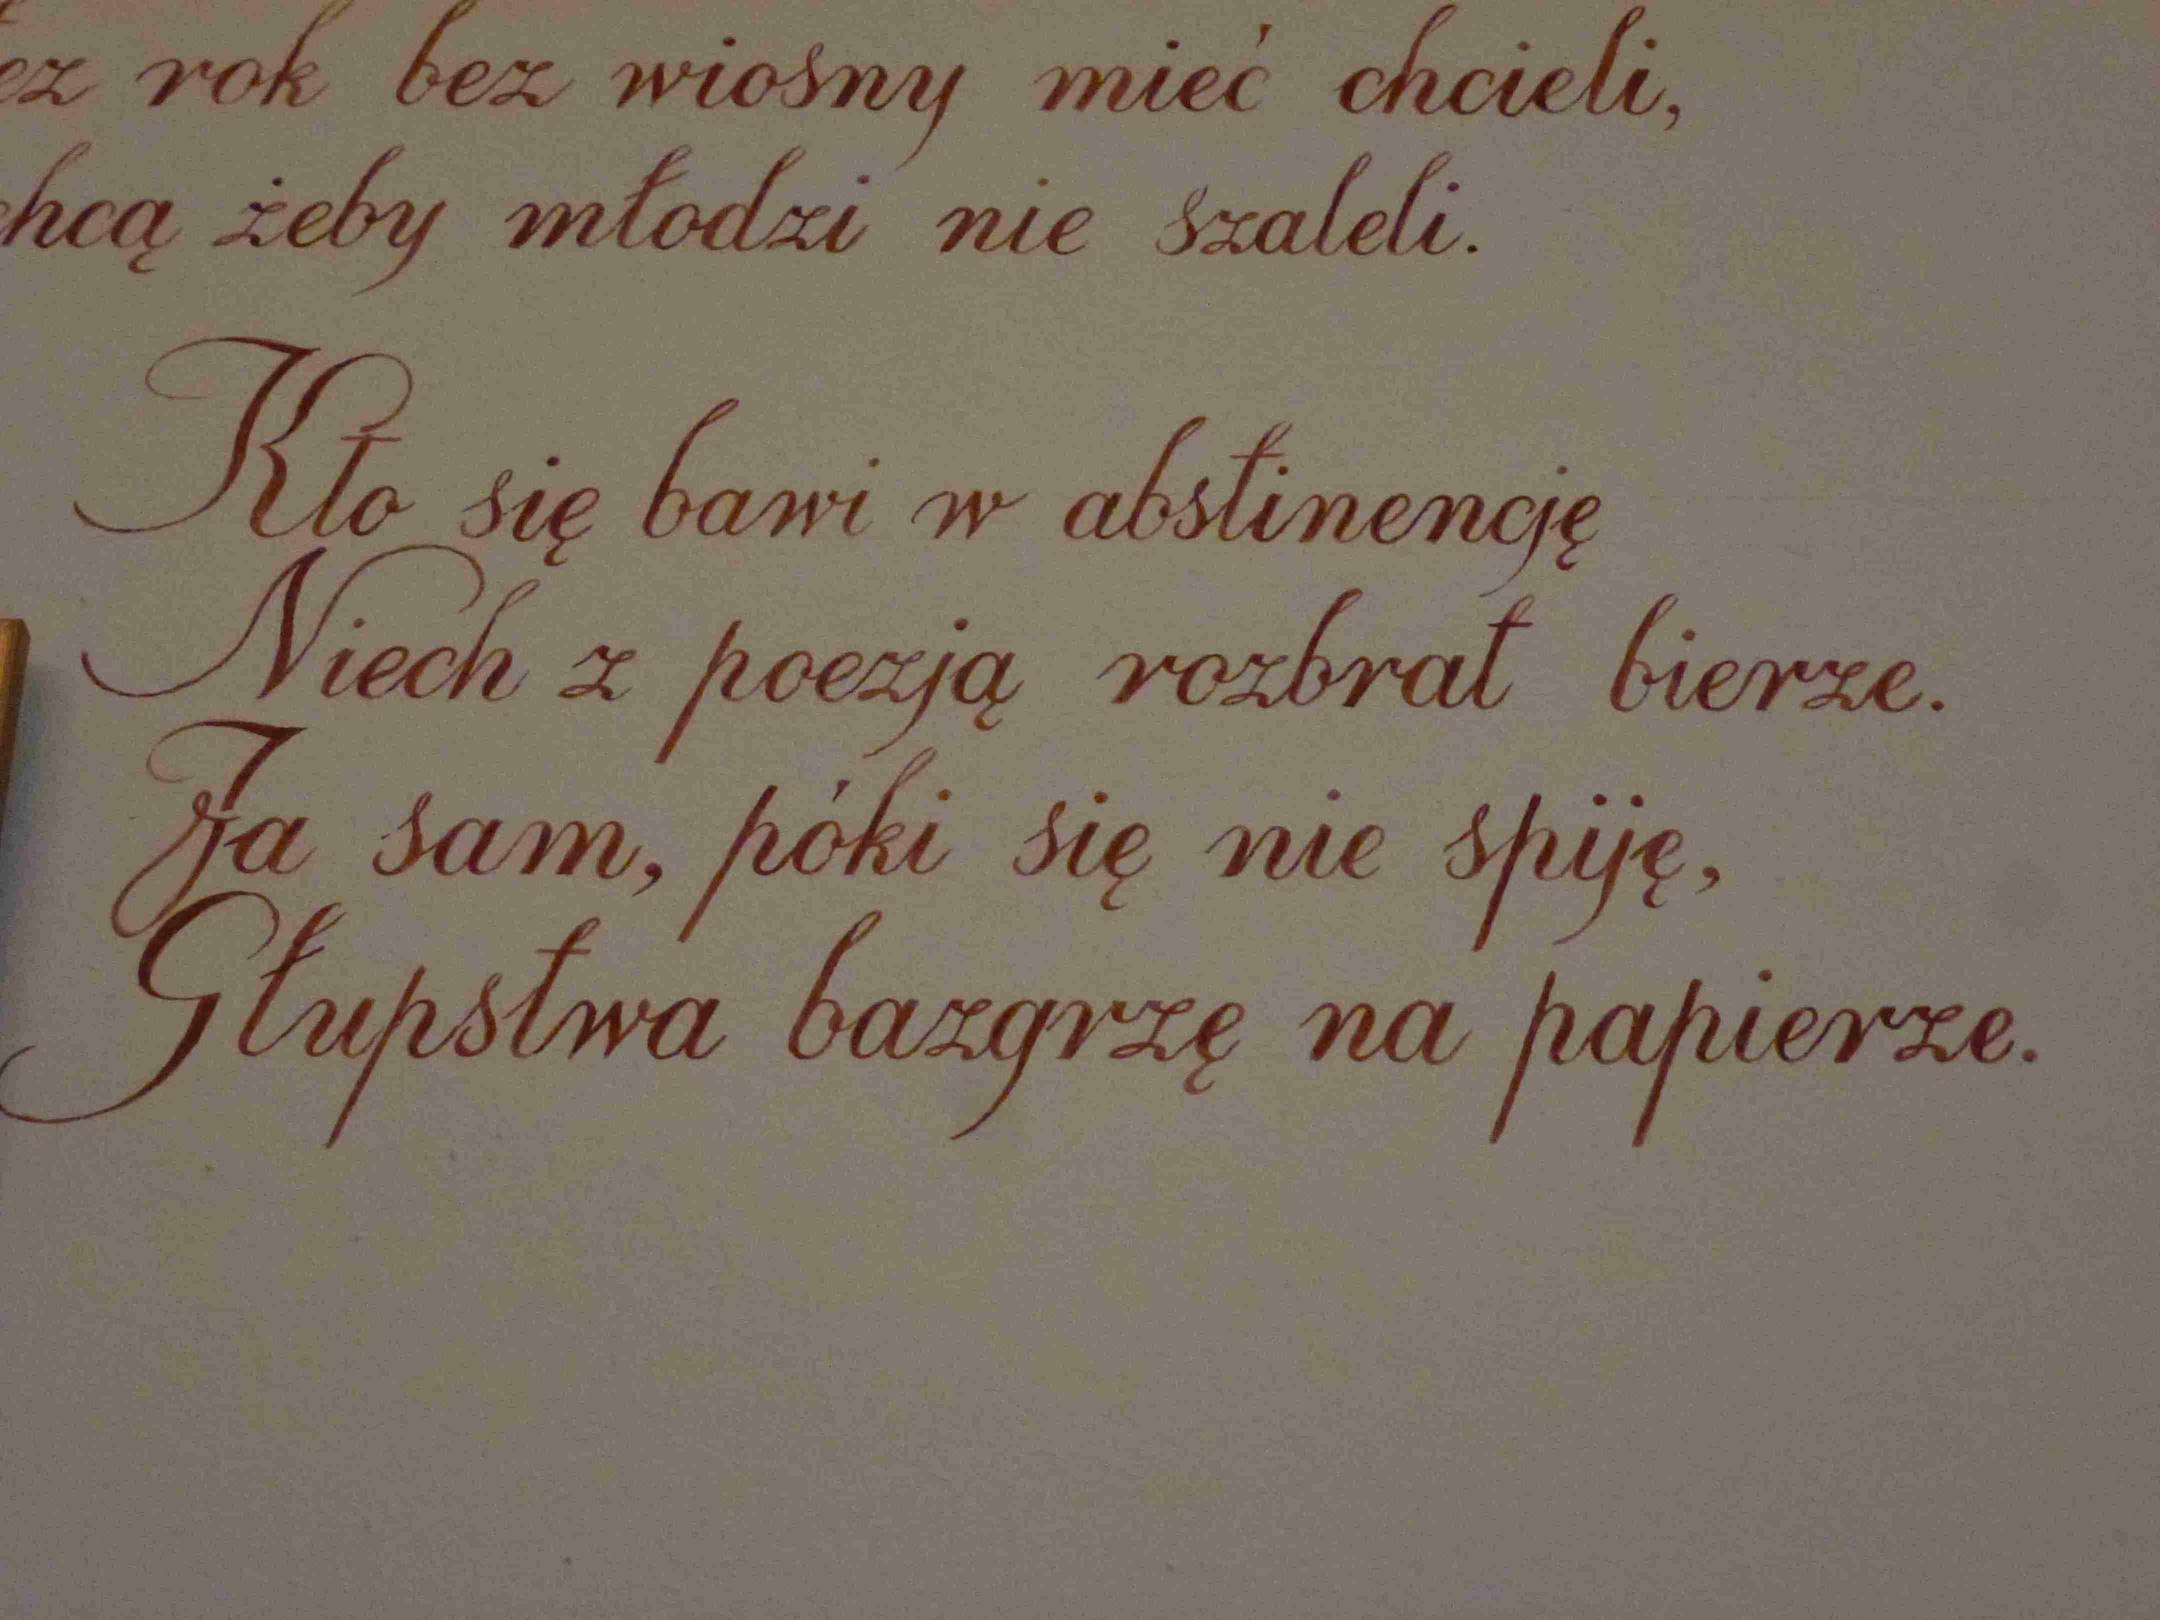 rok bez wiosny mieć chcieli,
żeby młodzi nie szaleli.
Kto się bawi w abstinencję
Niech z poezją rozbrat bierze.
Ja sam, póki się nie spiję,
Głupstwa bazgrzę na papierze.